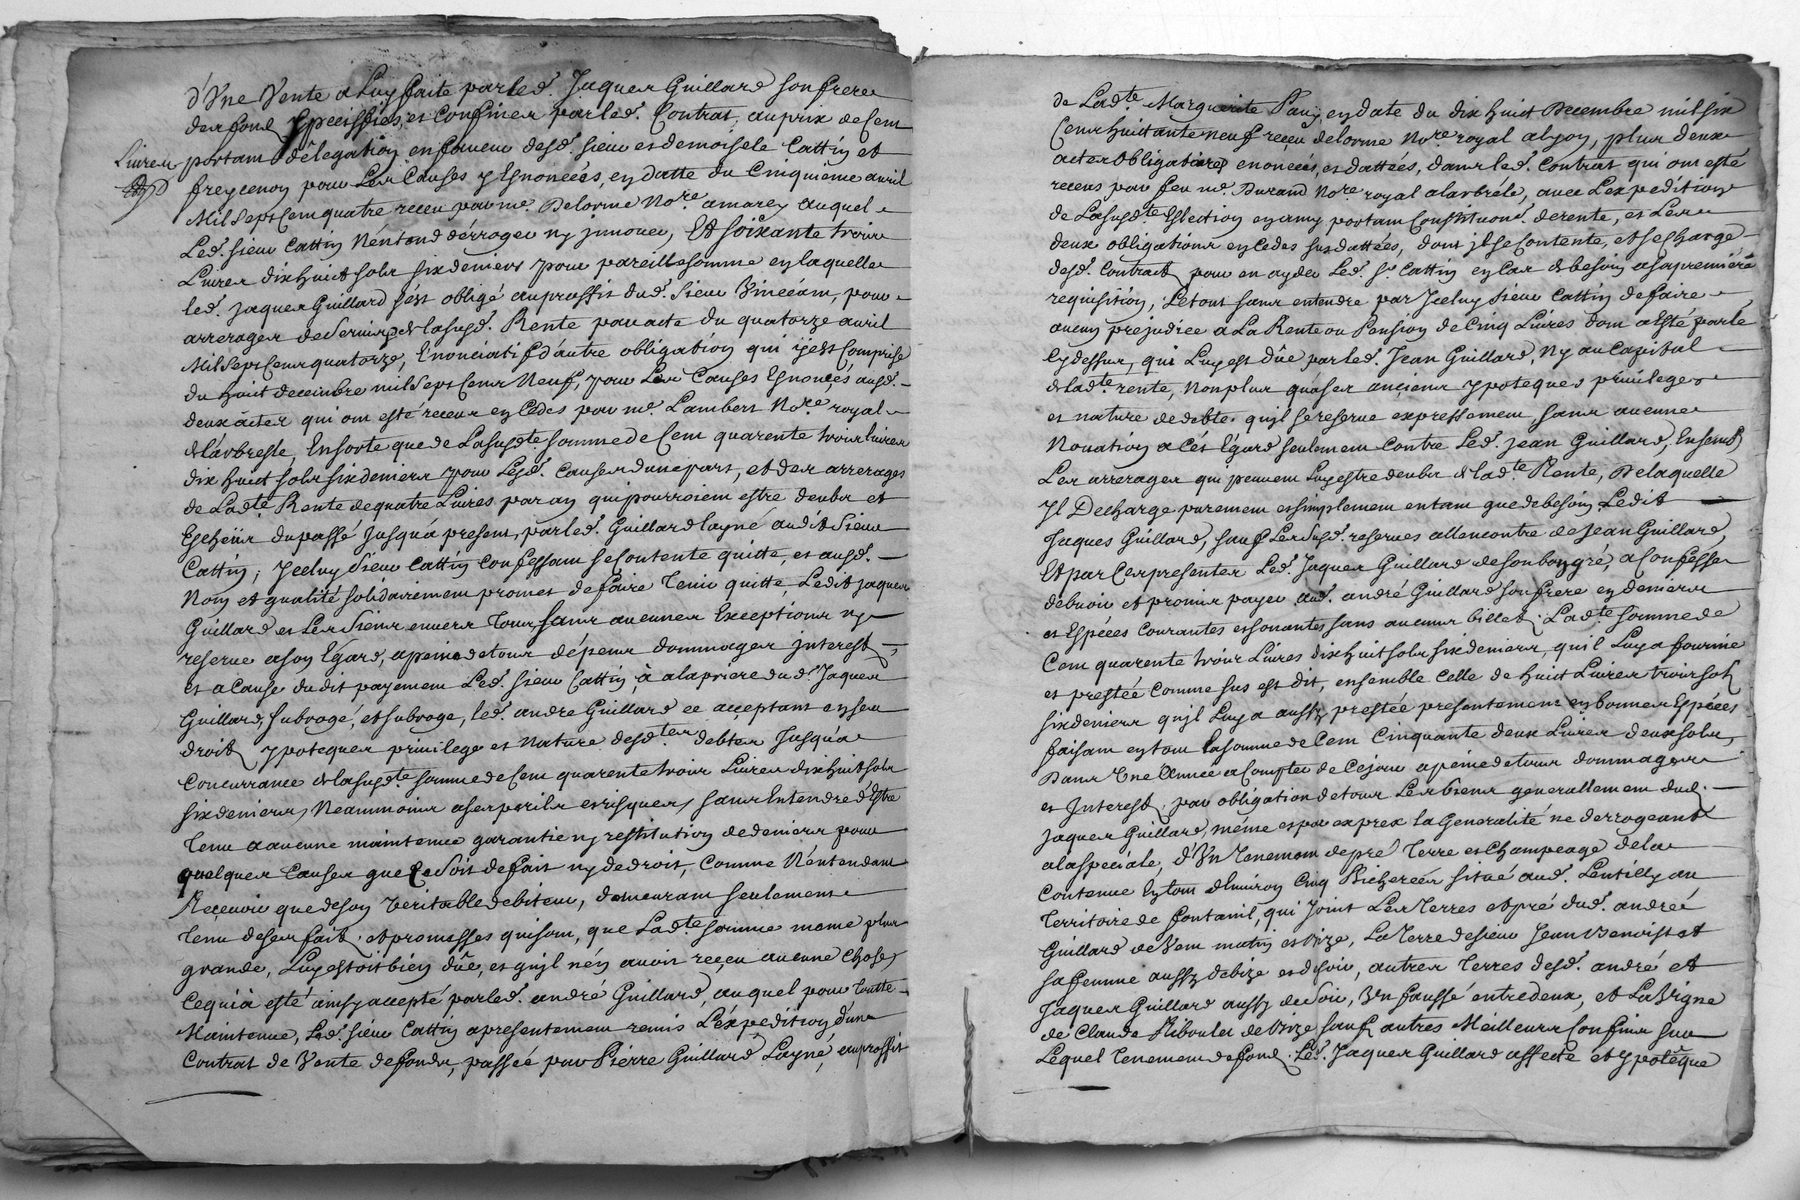 d'Une Vente a Luy faite par led. Jaques Guillard son frere
des fond speciffiés, et Confinés par led. Contrat, au prix de Cent
Livres portant délegation en faveur desd. sieur et demoisele Cattin et
freycenon pour Les Causes y Esnoncées, en datte du Cinquième avril
Mil Sept Cent quatre receu par me. Delorme Nore. a marcy auquel
Led. sieur Cattin N'éntend dérroger ny jnnover, Et soixante trois
Livres dix huit sols six deniers pour pareille somme en laquelle
led. Jaques Guillard s'est obligé au proffit dud. Sieur Vincéant, pour
arrerages de Servis de lasusd. Rente par acte du quatorze avril
Mil Sept Cens quatorze, Enonciatif d'autre obligation qui y est Comprise
du huit decembre mil Sept Cens Neuf, pour Les Causes Esnoncés ausd.
deux actes qui ont esté receus en Cedes par me. Lambert Nore. royal
de larbresle, En sorte que de Lasusdte somme de Cent quarente trois livres
dix huit sols six deniers pour Lesd. Causes d'une part, et des arrerages
de Ladte. Rente de quatre Livres par an qui pourroient estre deubs et
Escheüs du passé Jusqu'a present, par led. Guillard layné audit Sieur
Cattin, Jceluy Sieur Cattin Confessant se Contente quitte, et ausd.
Nom et qualité solidairement promet de faire Tenir quitte, Ledit Jaques
Guillard et Les Siens envers Tous, sans aucunes Exceptions ny
reserve a son Egard, a peine de tous dépens dommages jnterest,
et a Cause dudit payement Led. Sieur Cattin, à a la priere dud. Jaques
Guillard, subrogé, et subroge, led. andré Guillard ce acceptant en son
droit ypoteques privilege et Nature desdtes debtes Jusqu'a
Concurrance de lasusdte. somme de Cent quarente trois Livres dix huit sols
six deniers, Neanmoins a ses perils et risques, sans Entendre d'Estre
Tenu a aucune maintenüe garantie ny restitution de deniers pour
quelques Causes que Ce soit de fait ny de droit, Comme N'éntendant
Recevoir que de son Veritable debiteur, demeurant seulement
Tenu de ses fait, et promesses qui sont, que Ladte somme mème plus
grande, Luy estoit bien dûe, et qu'jl n'én avoir reçeu aucune Chose,
Ce qui à esté ainsy accepté par led. andré Guillard, auquel pour Toutte
Maintenüe, Led. sieur Cattin a presentement remis L'éxpedition d'un
Contrat de Vente de fonds, passée par Pierre Guillard Layné, au proffit
de Ladte Marguerite Pay, en date du dix huit Decembre mil six
Cens huitante neuf receu delorme Nore royal a lyon, plus deux
actes Obligatoires enoncées, et dattées, dans led. Contrat qui ont esté
receus par feu me. Durand Nore. royal a larbrèle, avec L'expedition
de Lasusdte Eslection en amy portant Constituon. de rente, et Les
deux obligations en Cedes susdattées, dont jl se Contente, et se charge
desd. Contrat pour en ayder Led. Sr Cattin en Cas de besoin a sa première
requisition, Le tout sans entendre par Jceluy Sieur Cattin de faire
aucun prejudice a La Rente ou Pension de Cinq Livres dont a Esté parlé
Cydessus, qui Luy est dûe par led. Jean Guillard, Ny au Capital
de ladte rente, Non plus qu'a ses anciens ypoteques privileges
et nature de debte. qu'jl se reserve expressement sans aucune
Novation a Cét Egard seulement Contre Led. Jean Guillard, Ensemble
Les arrerages qui peuvent Luy estre deubs de ladte Rente, De laquelle
Jl Decharge purement et simplement en tant que de besoin Ledit
Jaques Guillard, sauf Les Susd. reserves a l'encontre de Jean Guillard,
Et par Ces presentes Led. Jaques Guillard de son bon gré, a Confessé
debvoir et promis payer aud. andré Guillard son frere en deniers
et Espéces Courantes et sonantes sans aucuns billet; Ladte somme de
Cent quarente trois Livres dix huit sols six deniers, qu'il Luy a fournie
et prestée Comme sus est dit, ensemble Celle de huit Livres trois sols
six deniers qu'jl Luy a aussy prestée presentement en bonnes Espéces
faisant en tout la somme de Cent Cinquante deux Livres deux sols,
Dans Une Année a Compter de Cejour a peine de tous dommages
et Jnterest, par obligation de tous Les biens generallement dud.
Jaques Guillard, même et par exprex la Generalité ne derrogeant
a la speciale, d'Un Tenement de pré Terre et Champeage de la
Contenüe En tout d'Environ Cinq Bicherées situé aud. Lentilly au
Territoire de fontanil, qui Joint Les Terres et pré dud. andré
Guillard de Vent matin et bize, La Terre de sieur Jean Benoist et
sa femme aussy de bize et de soir, autres Terres desd. andré et
Jaques Guillard aussy de Soir, Un faussé entredeux, et La Vigne
de Claude Riboulet de bize sauf autres Meilleurs Confins sur
Lequel Tenement de fond. Led. Jaques Guillard affecte et ypotêque